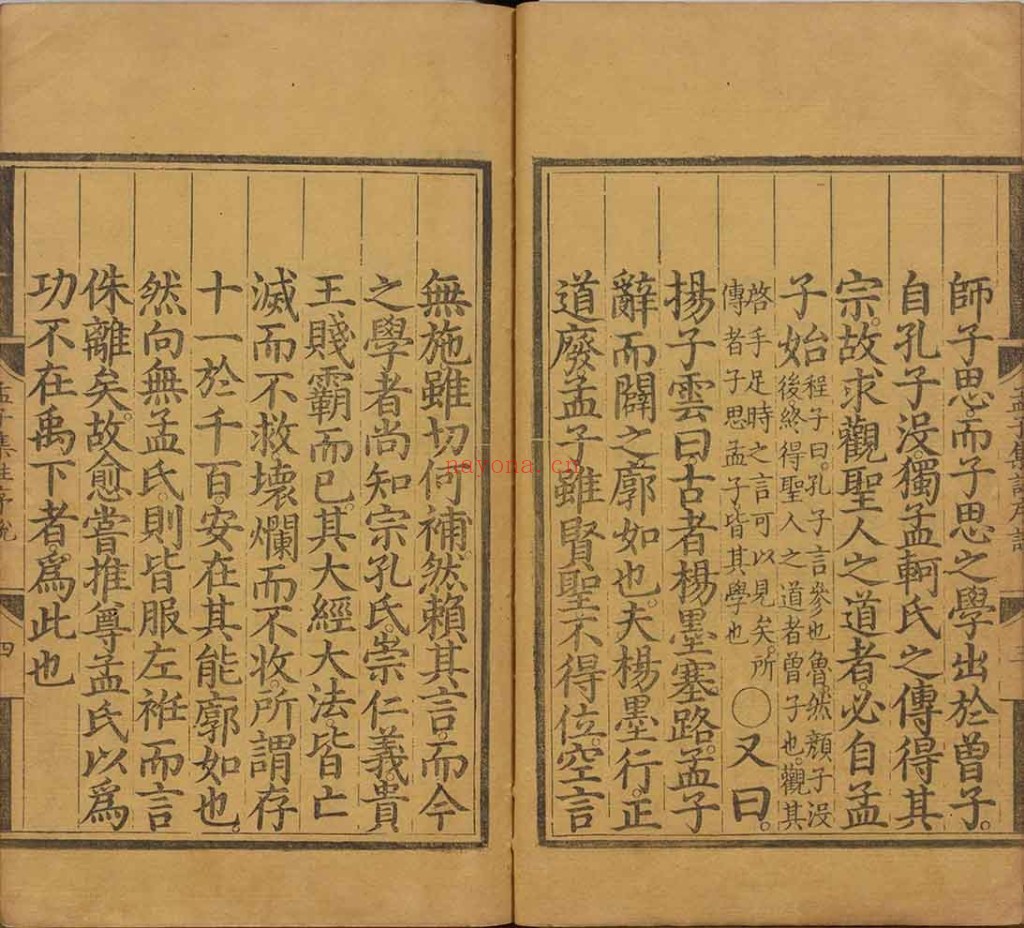 師子思。而子思之學出於曾子。
自孔子没。獨孟軻氏之傳得其
宗。故求觀聖人之道者。必自孟
子始
程子曰。孔子言參也魯。然顏子没
後。終得聖人之道者。曾子也。觀其
啓手足時之言。可以見矣。所
傳者子思孟子。皆其學也
○又曰。
揚子雲曰。古者楊墨塞路。孟子
辭而闢之。廓如也。夫楊墨行。正
道廢。孟子雖賢聖。不得位。空言
無施。雖切何補。然賴其言。而今
之學者尚知宗孔氏。崇仁義。貴
王賤霸而已。其大經大法。皆亡
滅而不救。壞爛而不收。所謂存
十一於千百。安在其能廓如也。
然向無孟氏。則皆服左衽而言
侏離矣。故愈嘗推尊孟氏。以爲
功不在禹下者。爲此也
孟子集註序說
四
nayona.cn